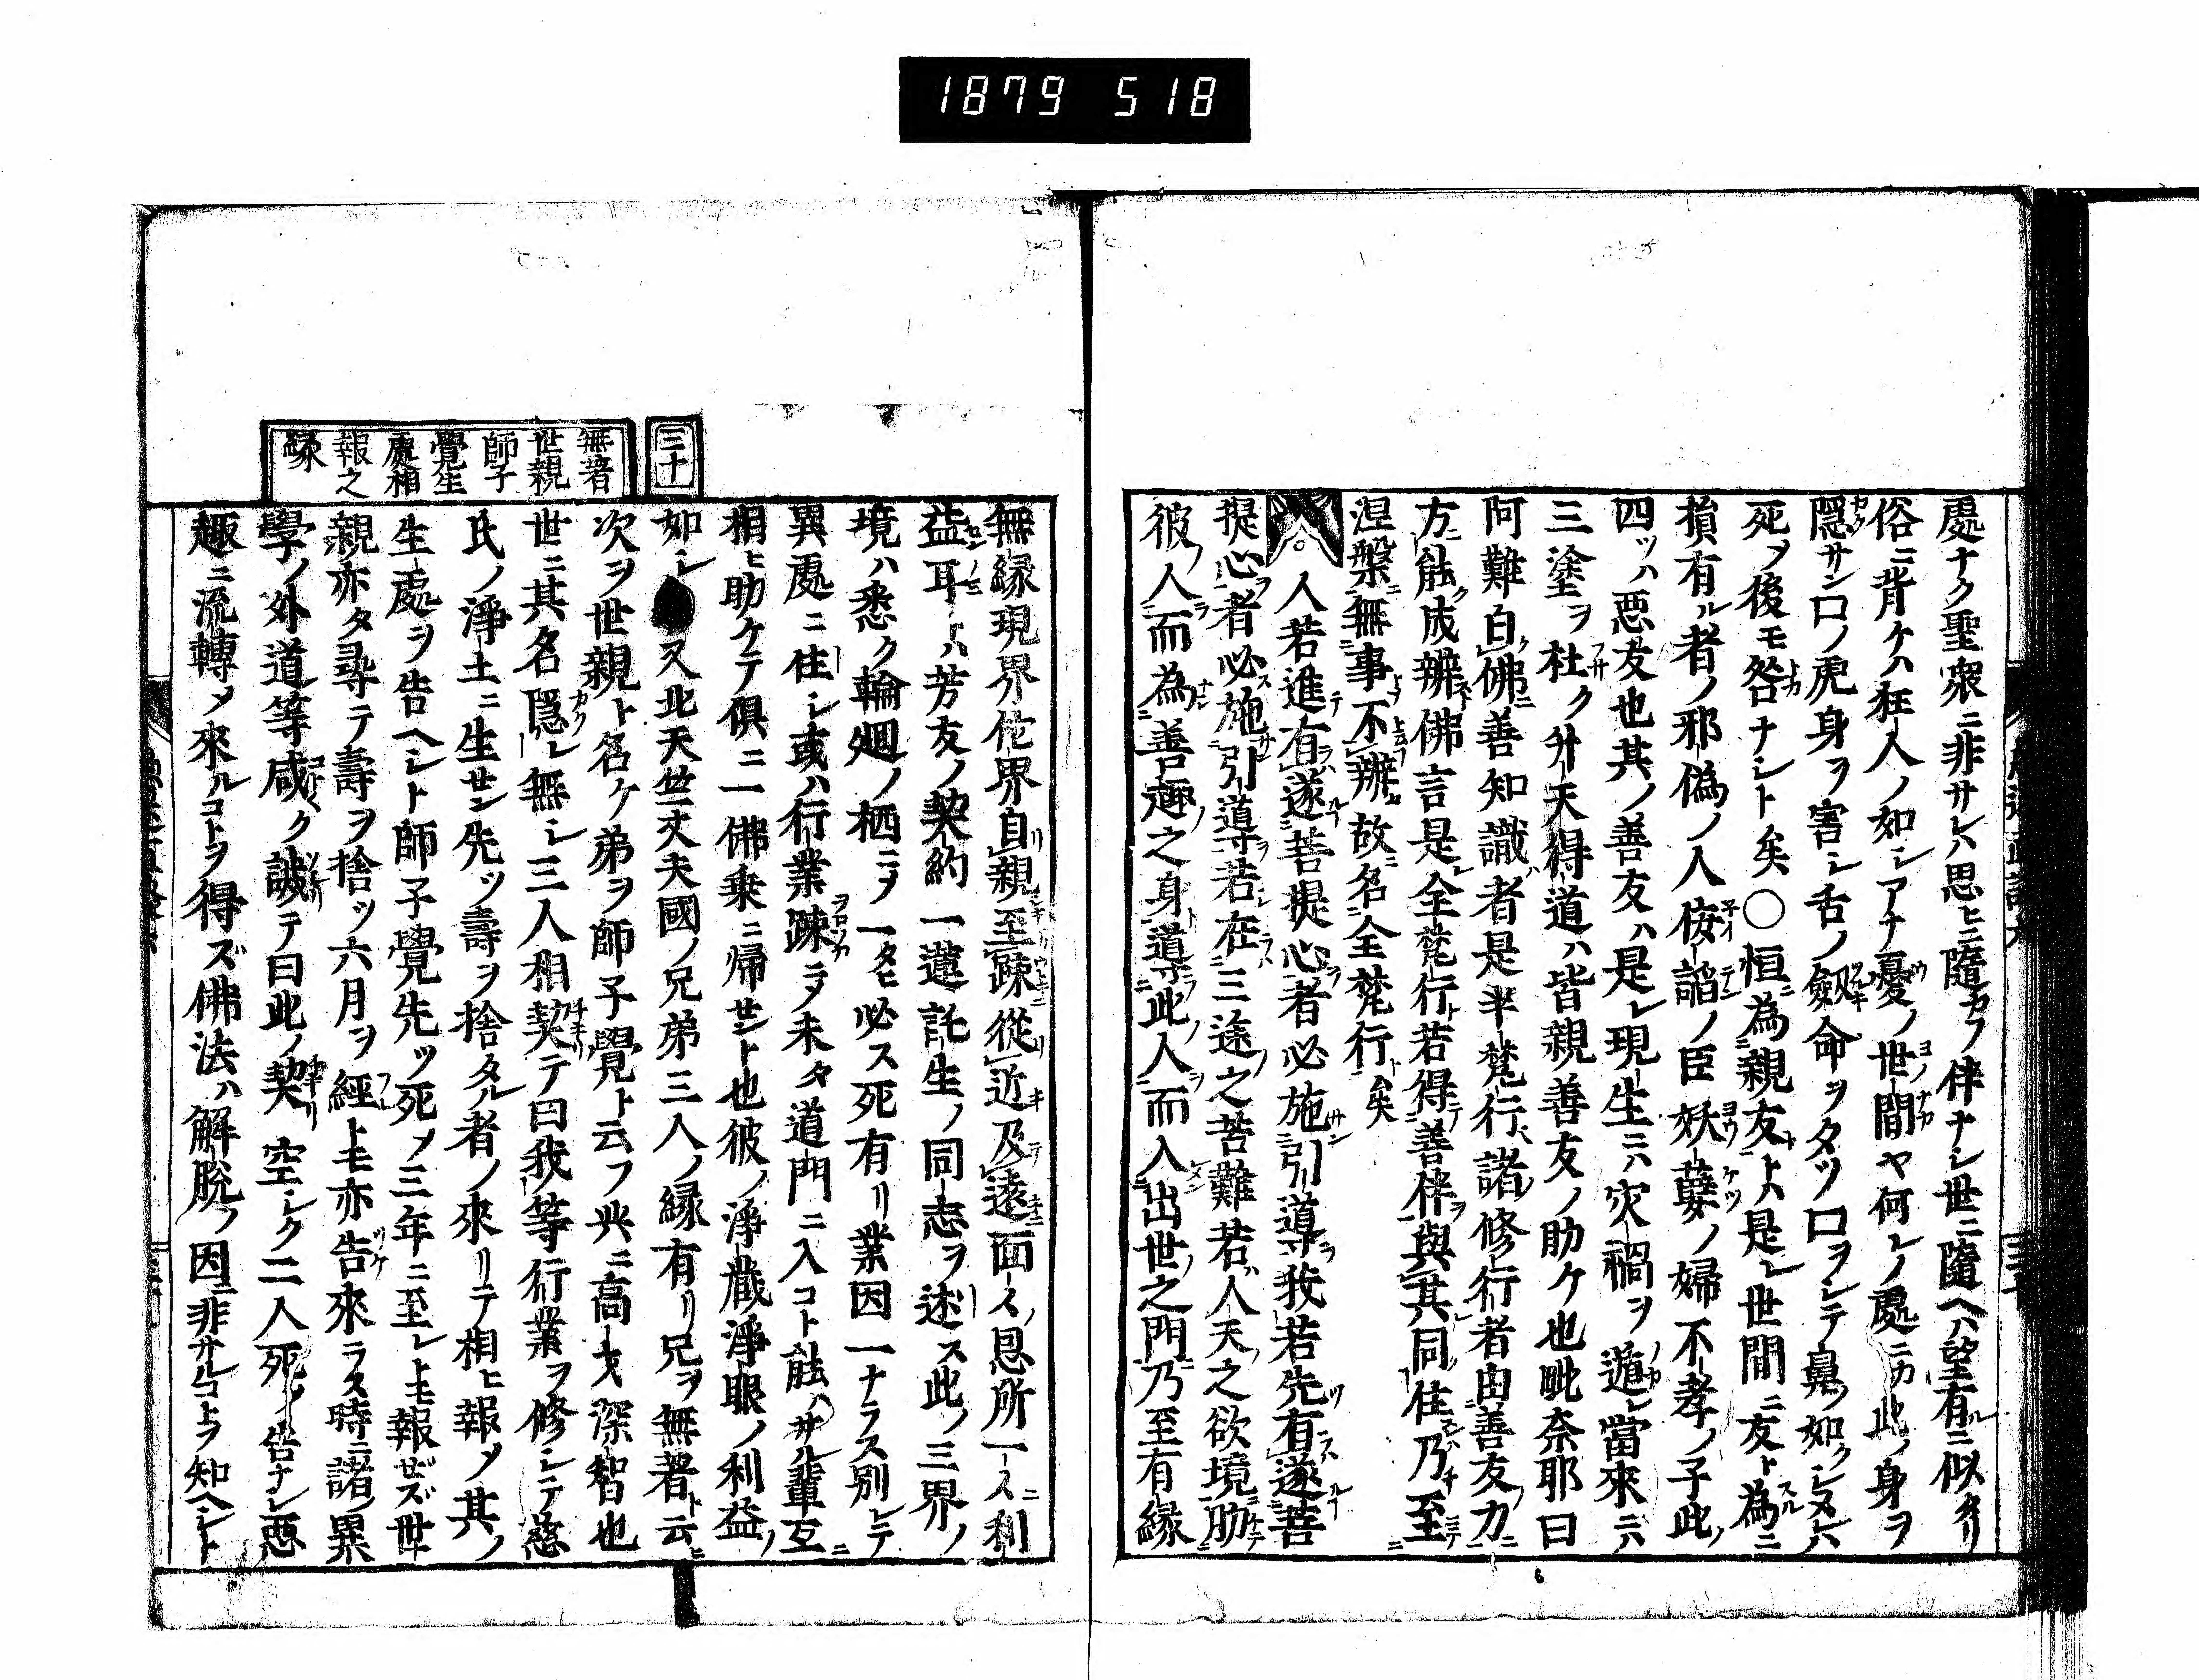 1879 518
處ナク聖衆ニ非サレハ思ヒニ隨カフ伴ナシ世ニ隨ヘハ望有ルニ似タリ
俗ニ背ケハ狂人ノ如シアナ憂ノ世間ヤ何レノ處ニカ此ノ身ヲ
隱サン口ノ虎身ヲ害シ舌ノ劔命ヲタツ口ヲシテ鼻ノ如クシヌレハ
死ヲ後モ咎ナシト矣○恒為親友トハ是レ世間ニ友ト為ニ
損有ル者ノ邪僞ノ人侫謟ノ臣妖孽ノ婦不孝ノ子此ノ
四ツハ惡友也其ノ善友ハ是レ現生ニハ灾禍ヲ遁レ當來ニハ
三塗ヲ杜ク升天得道ハ皆親善友ノ助ケ也毗奈耶曰
阿難白佛善知識者是半梵行諸修行者由善友力
方能成辨佛言是全梵行若得善伴與其同住乃至
涅槃無事不辨故名全梵行矣
人若進有遂菩提心者必施引導我若先有遂菩
提心者必施引導若在三途之苦難若人天之欲境肋
彼人而為善趣之身導此人而入出世之門乃至有縁
無縁現界佗界自親至疎從近及遠面ス恩所一ス利
益耳トハ芳友ノ契約一蓮託生ノ同志ヲ述ス此ノ三界ノ
境ハ悉ク輪廻ノ栖ニヲ一タヒ必ス死有リ業因一ナラス別レテ
異處ニ住シ或ハ行業疎ニヲ未タ道門ニ入コト能ハサル輩互
相ヒ助ケテ俱ニ一佛乗ニ帰セント也彼ノ淨藏淨眼ノ利益ノ
如シ 又北天竺丈夫國ノ兄弟三人ノ縁有リ兄ヲ無著ト云
次ヲ世親ト名ケ弟ヲ師子覺ト云フ共ニ高才深智也
世ニ其名隱レ無シ三人相契テ曰我等行業ヲ修シテ慈
氏ノ淨土ニ生セン先ツ壽ヲ捨タル者ノ來リテ相ヒ報メ其ノ
生處ヲ告ヘシト師子覺先ツ死メ三年ニ至レトモ報ゼズ世
親亦タ尋テ壽ヲ捨ツ六月ヲ經トモ亦告來ラス時ニ諸ノ異
學ノ外道等咸ク誠テ曰此ノ契空シク二人死メ告ナシ惡
趣ニ流轉メ來ルコトヲ得ズ佛法ハ解脫ノ因ニ非サルコトヲ知ヘシト
三十
無著
世親
師子
覺生
處相
報之
縁